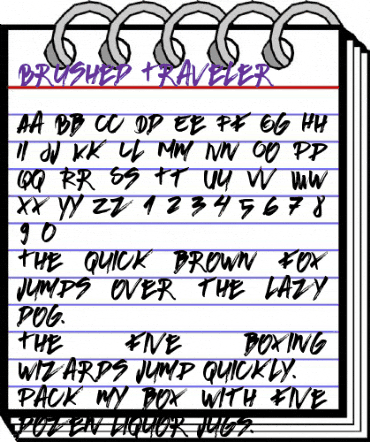 BRUSHED TRAVELER
AA BB CC DD EE FF GG HH
II JJ KK LL MM NN OO PP
QQ RR SS TT UU VV WW
XX YY ZZ 1 2 3 4 5 6 7 8
9 0
THE QUICK BROWN FOX
JUMPS OVER THE LAZY
DOG.
THE FIVE BOXING
WIZARDS JUMP QUICKLY.
PACK MY BOX WITH FIVE
DOZEN LIQUOR JUGS.